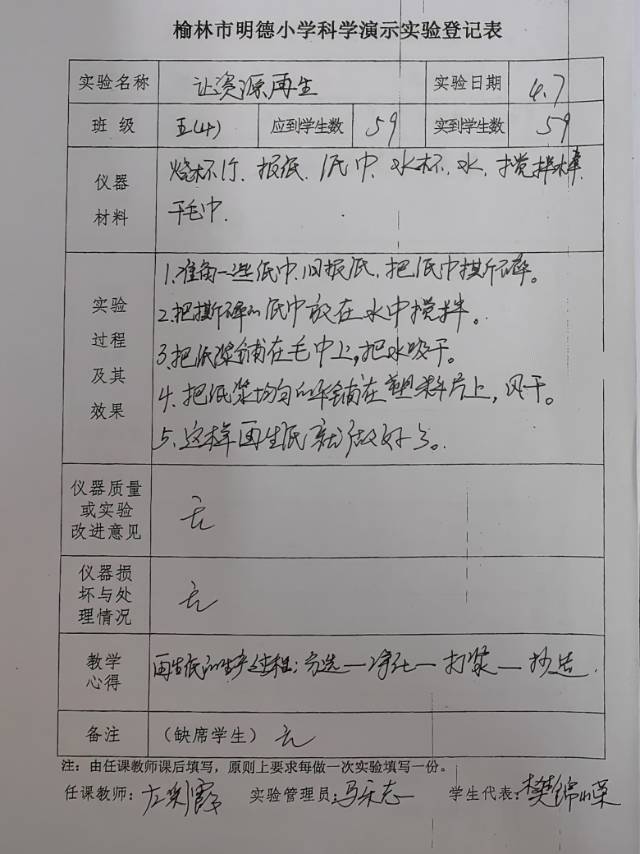 榆林市明德小学科学演示实验登记表
实验名称 让资源再生 实验日期 4.7
班 级 五(4) 应到学生数 59 实到学生数 59
仪器材料 烧杯、报纸、纸巾、水杯、水、搅拌棒
干毛巾.
实验过程及其效果 1.准备一些纸巾、旧报纸,把纸巾撕碎。
2.把撕碎的纸巾放在水中搅拌。
3.把纸浆铺在毛巾上,把水吸干。
4.把纸浆均匀的平铺在塑料片上,风干。
5.这样再生纸就做好了。
仪器质量或实验改进意见 无
仪器损坏与处理情况 无
教学心得 再生纸的生产过程:分选—净化—打浆—抄造.
备注 (缺席学生) 无
注:由任课教师课后填写,原则上要求每做一次实验填写一份。
任课教师: 实验管理员: 马 志 学生代表: 樊锦荣